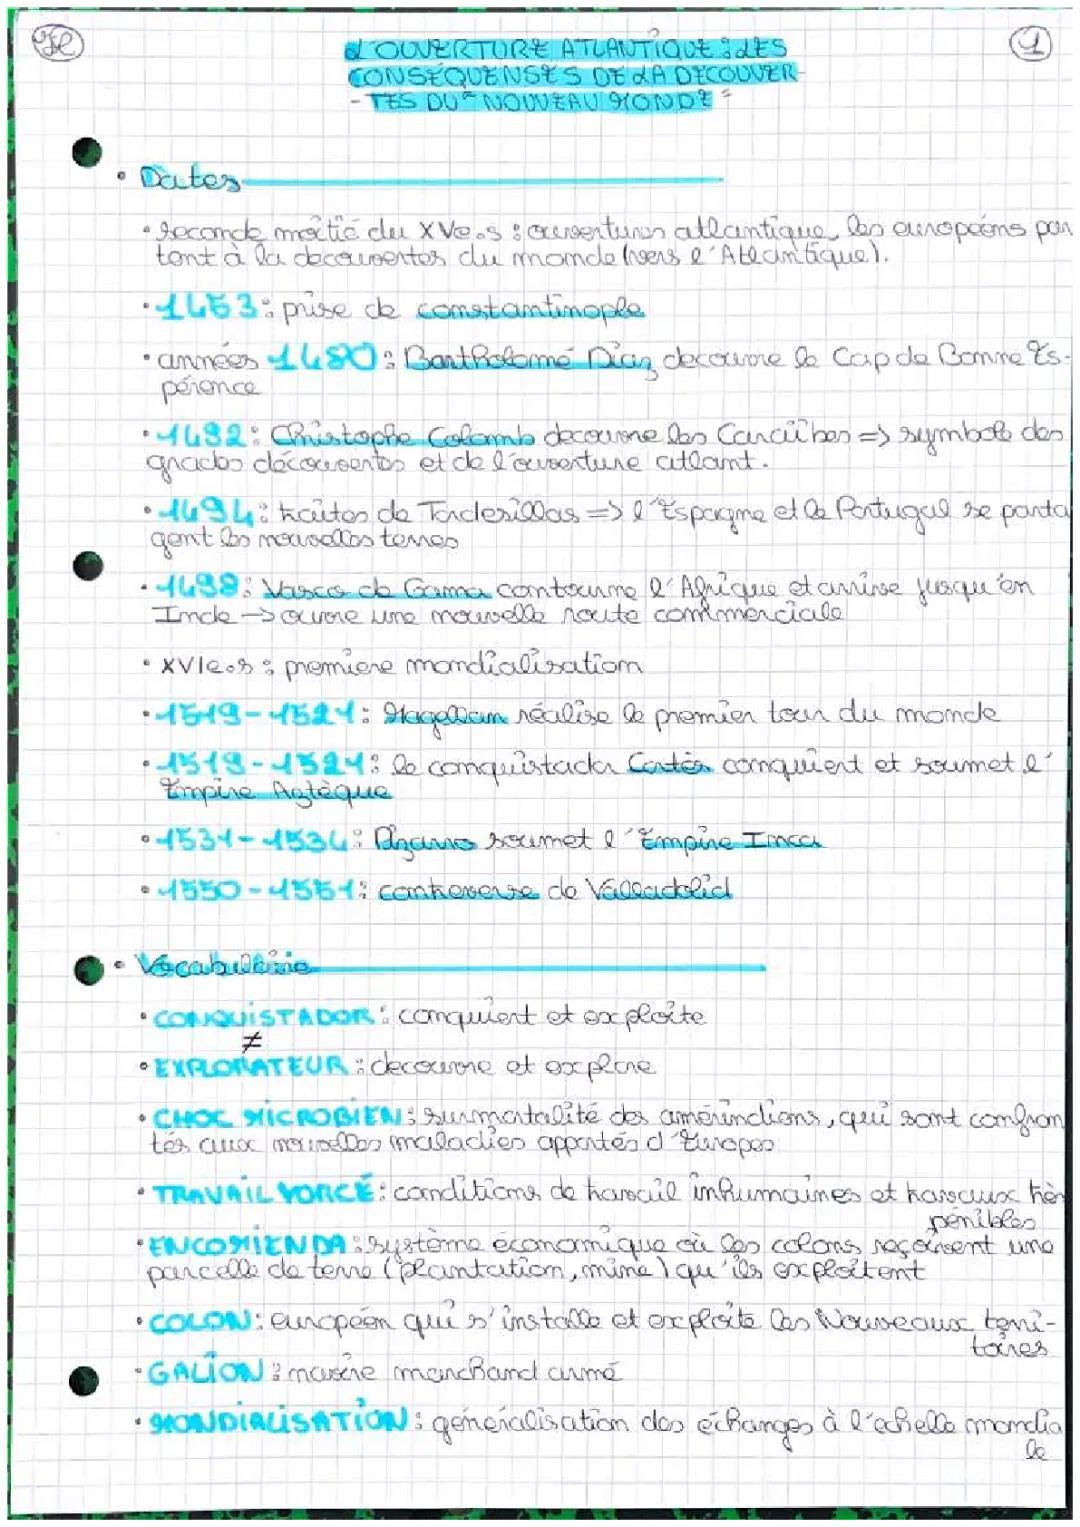 JR
1
L'OUVERTURE ATLANTIQUE : LES
CONSÉQUENSES DE LA DECOUVER-
-TES DU "NOUVEAU MONDE"
• Dates
• seconde moitié du XVe.s : ouvertures atlantique, les européens par
tent à la decouvertes du monde (vers l'Atlantique).
• 1453 : prise de constantinople
• années 1480 : Bartholomé Diaz decouvre le Cap de Bonne Es-
pérence
• 1492 : Christophe Colomb decouvre les Caraïbes => symbole des
grades découvertes et de l'ouverture atlant.
• 1494 : traites de Tordesillas => l'Espagne et le Portugal se parta
gent les nouvelles terres
• 1498 : Vasco de Gama contourne l'Afrique et arrive jusqu'en
Inde -> ouvre une nouvelle route commerciale
• XVIe.s : premiere mondialisation
• 1519-1521 : Magellan réalise le premier tour du monde
• 1519-1521 : le conquistador Cortés conquient et soumet l'
Empire Aztèque
• 1531-1534 : Pizarro soumet l'Empire Inca
• 1550-1551 : controverse de Valladolid
• Vocabulaire
• CONQUISTADOR : conquient et exploite
≠
• EXPLORATEUR : decouvre et explore
• CHOC MICROBIEN : surmortalité des amérindiens, qui sont confron
tés aux nouvelles maladies apportés d'Europes
• TRAVAIL FORCÉ : conditions de travail inhumaines et travaux très
pénibles
• ENCOMIENDA : système économique où les colons reçoivent une
parcelle de terre (plantation, mine) qu'ils exploitent
• COLON : européen qui s'installe et exploite les Nouveaux terri-
toires
• GALION : navire marchand armé
• MONDIALISATION : généralisation des échanges à l'echelle mondia
le